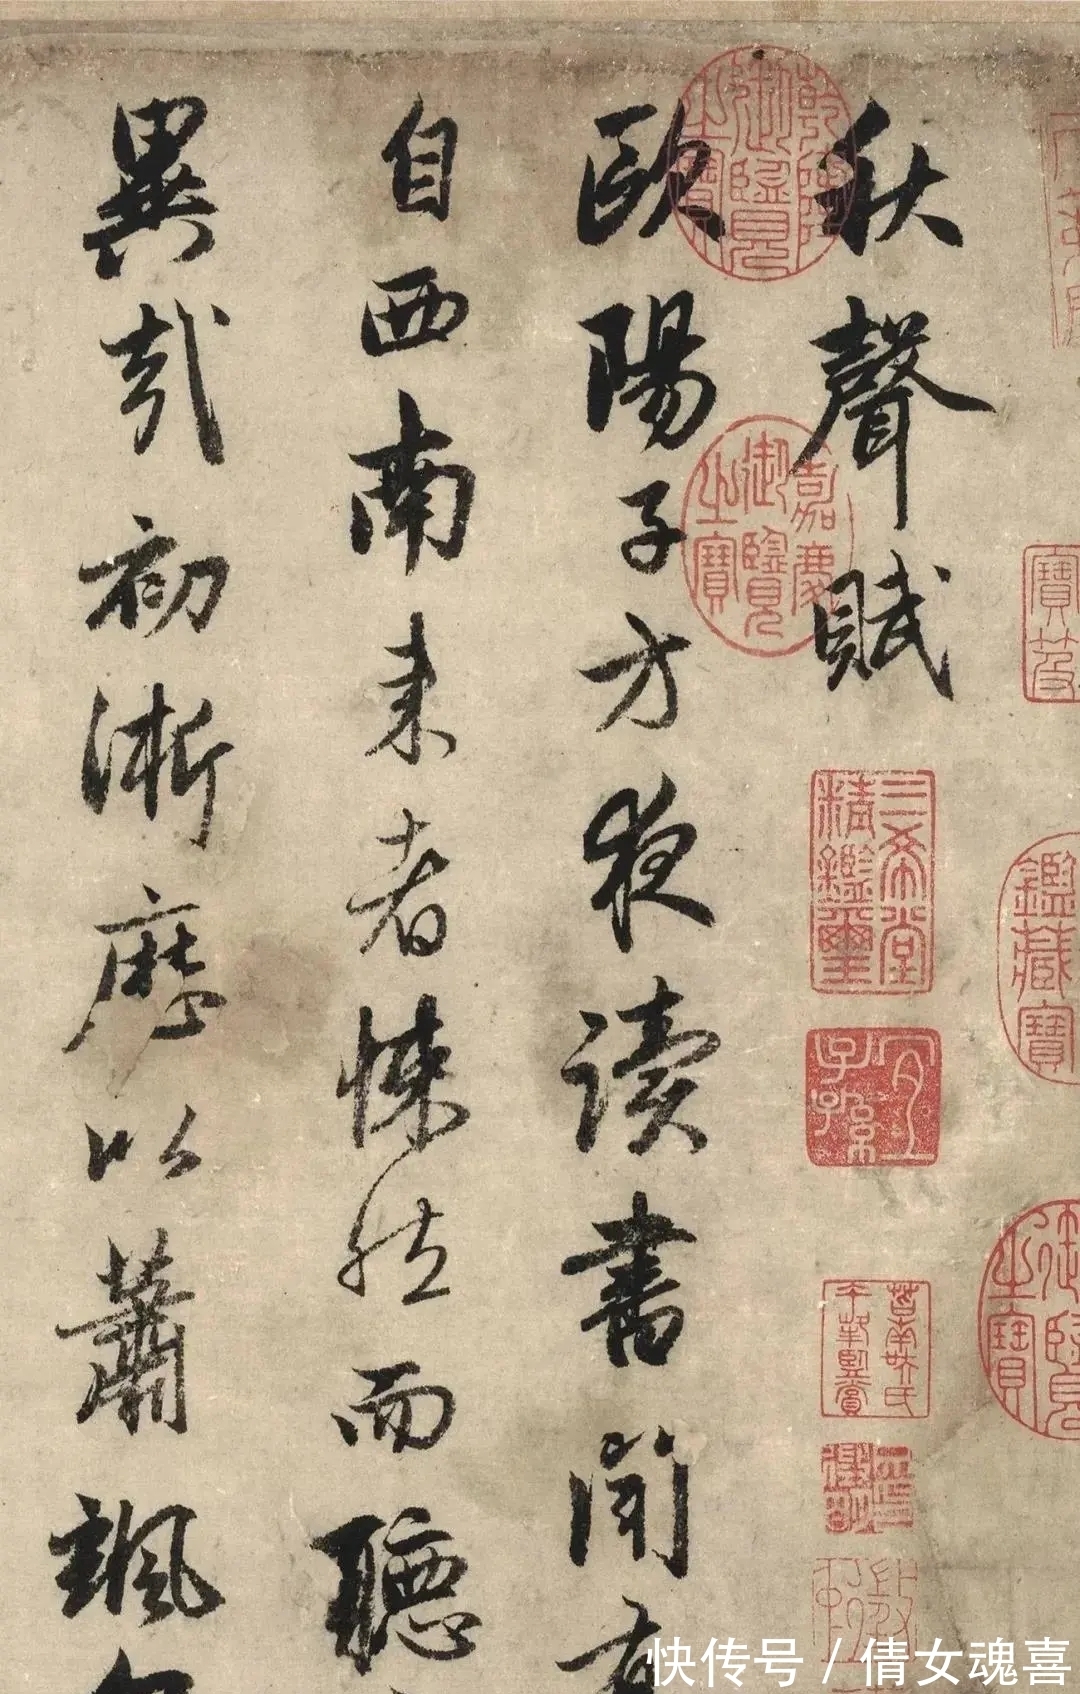 秋聲賦
歐陽子方夜讀書聞有
自西南來者悚然而聽
異哉初淅瀝以蕭颯
乾隆御覽之寶
嘉慶御覽之寶
三希堂精鑑璽
宜子孫
鑑藏寶
御覽之寶
寶笈
快传号 / 倩女魂喜